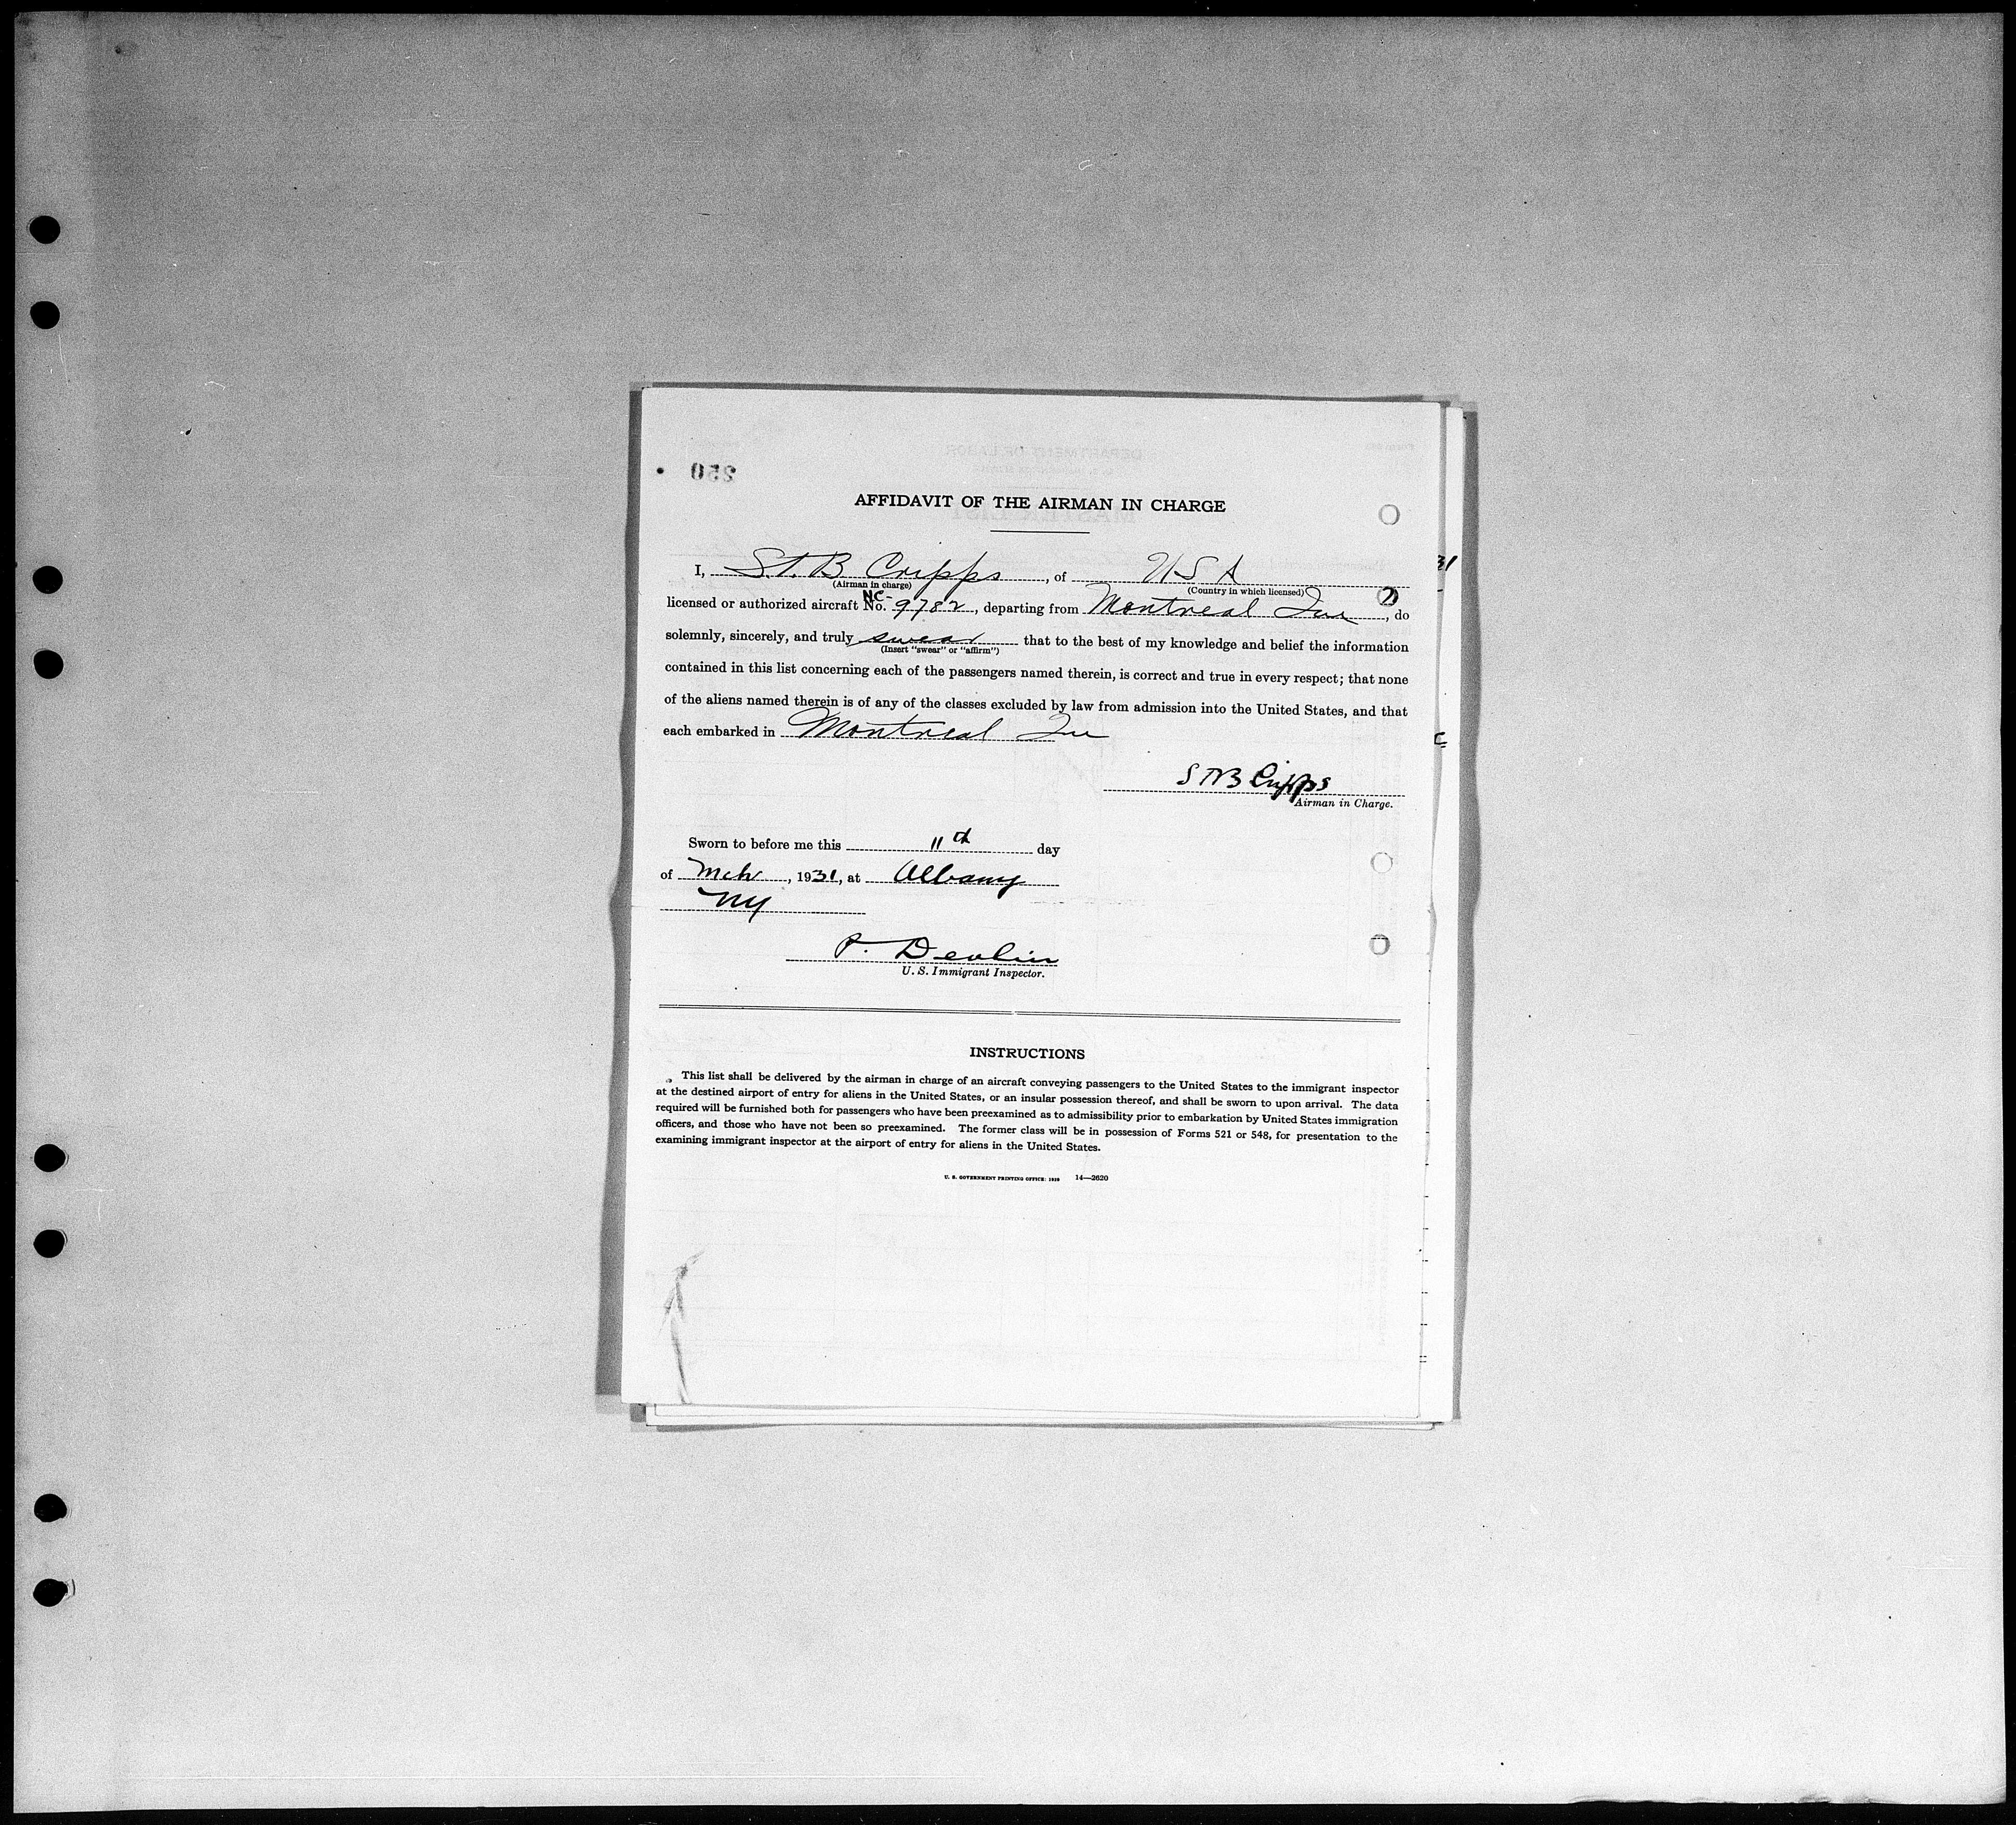 250
AFFIDAVIT OF THE AIRMAN IN CHARGE
I, S.T.B Cripps, of USA
(Airman in charge) (Country in which licensed)
licensed or authorized aircraft NC- No. 9782, departing from Montreal Que, do
solemnly, sincerely, and truly swear that to the best of my knowledge and belief the information
(Insert "swear" or "affirm")
contained in this list concerning each of the passengers named therein, is correct and true in every respect; that none
of the aliens named therein is of any of the classes excluded by law from admission into the United States, and that
each embarked in Montreal Que
STB Cripps
Airman in Charge.
Sworn to before me this 11th day
of Mch, 1931, at Albany
NY
P. Devlin
U. S. Immigrant Inspector.
INSTRUCTIONS
This list shall be delivered by the airman in charge of an aircraft conveying passengers to the United States to the immigrant inspector
at the destined airport of entry for aliens in the United States, or an insular possession thereof, and shall be sworn to upon arrival. The data
required will be furnished both for passengers who have been preexamined as to admissibility prior to embarkation by United States immigration
officers, and those who have not been so preexamined. The former class will be in possession of Forms 521 or 548, for presentation to the
examining immigrant inspector at the airport of entry for aliens in the United States.
U. S. GOVERNMENT PRINTING OFFICE: 14—2620